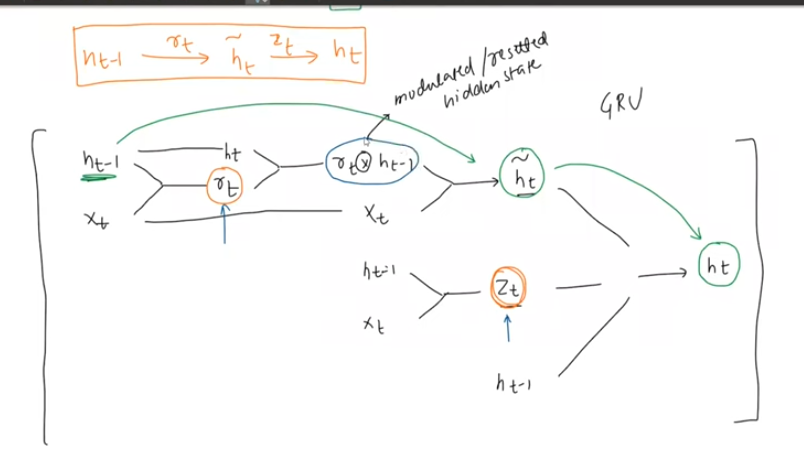 h_{t-1} →^{r_t} h̃_t →^{z_t} h_t
modulated/resetted
hidden state
GRU
h_{t-1} h_t r_t ⊗ h_{t-1} h̃_t
r_t
x_t x_t
h_{t-1} z_t h_t
x_t
h_{t-1}